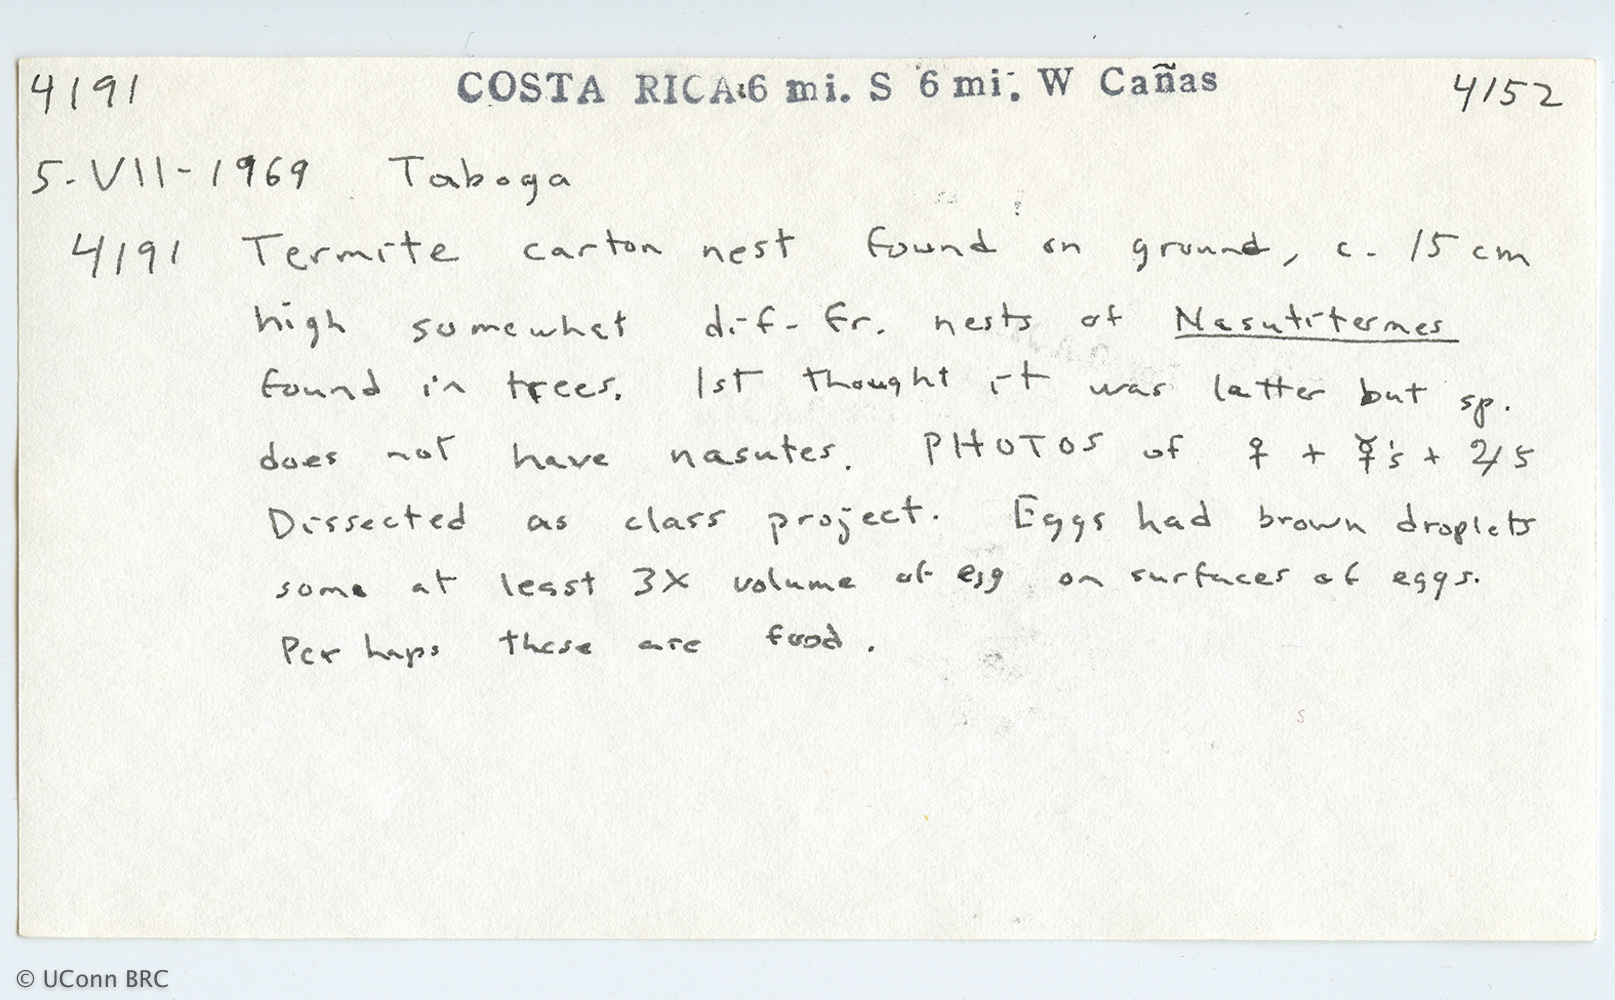 4191 COSTA RICA: 6 mi. S 6 mi. W Cañas 4152
5-VII-1969 Taboga
4191 Termite carton nest found on ground, c. 15 cm
high somewhat dif. fr. nests of Nasutitermes
found in trees. 1st thought it was latter but sp.
does not have nasutes. PHOTOS of ♀ + ☿'s + 24s
Dissected as class project. Eggs had brown droplets
some at least 3X volume of egg on surfaces of eggs.
Perhaps these are food.
© UConn BRC